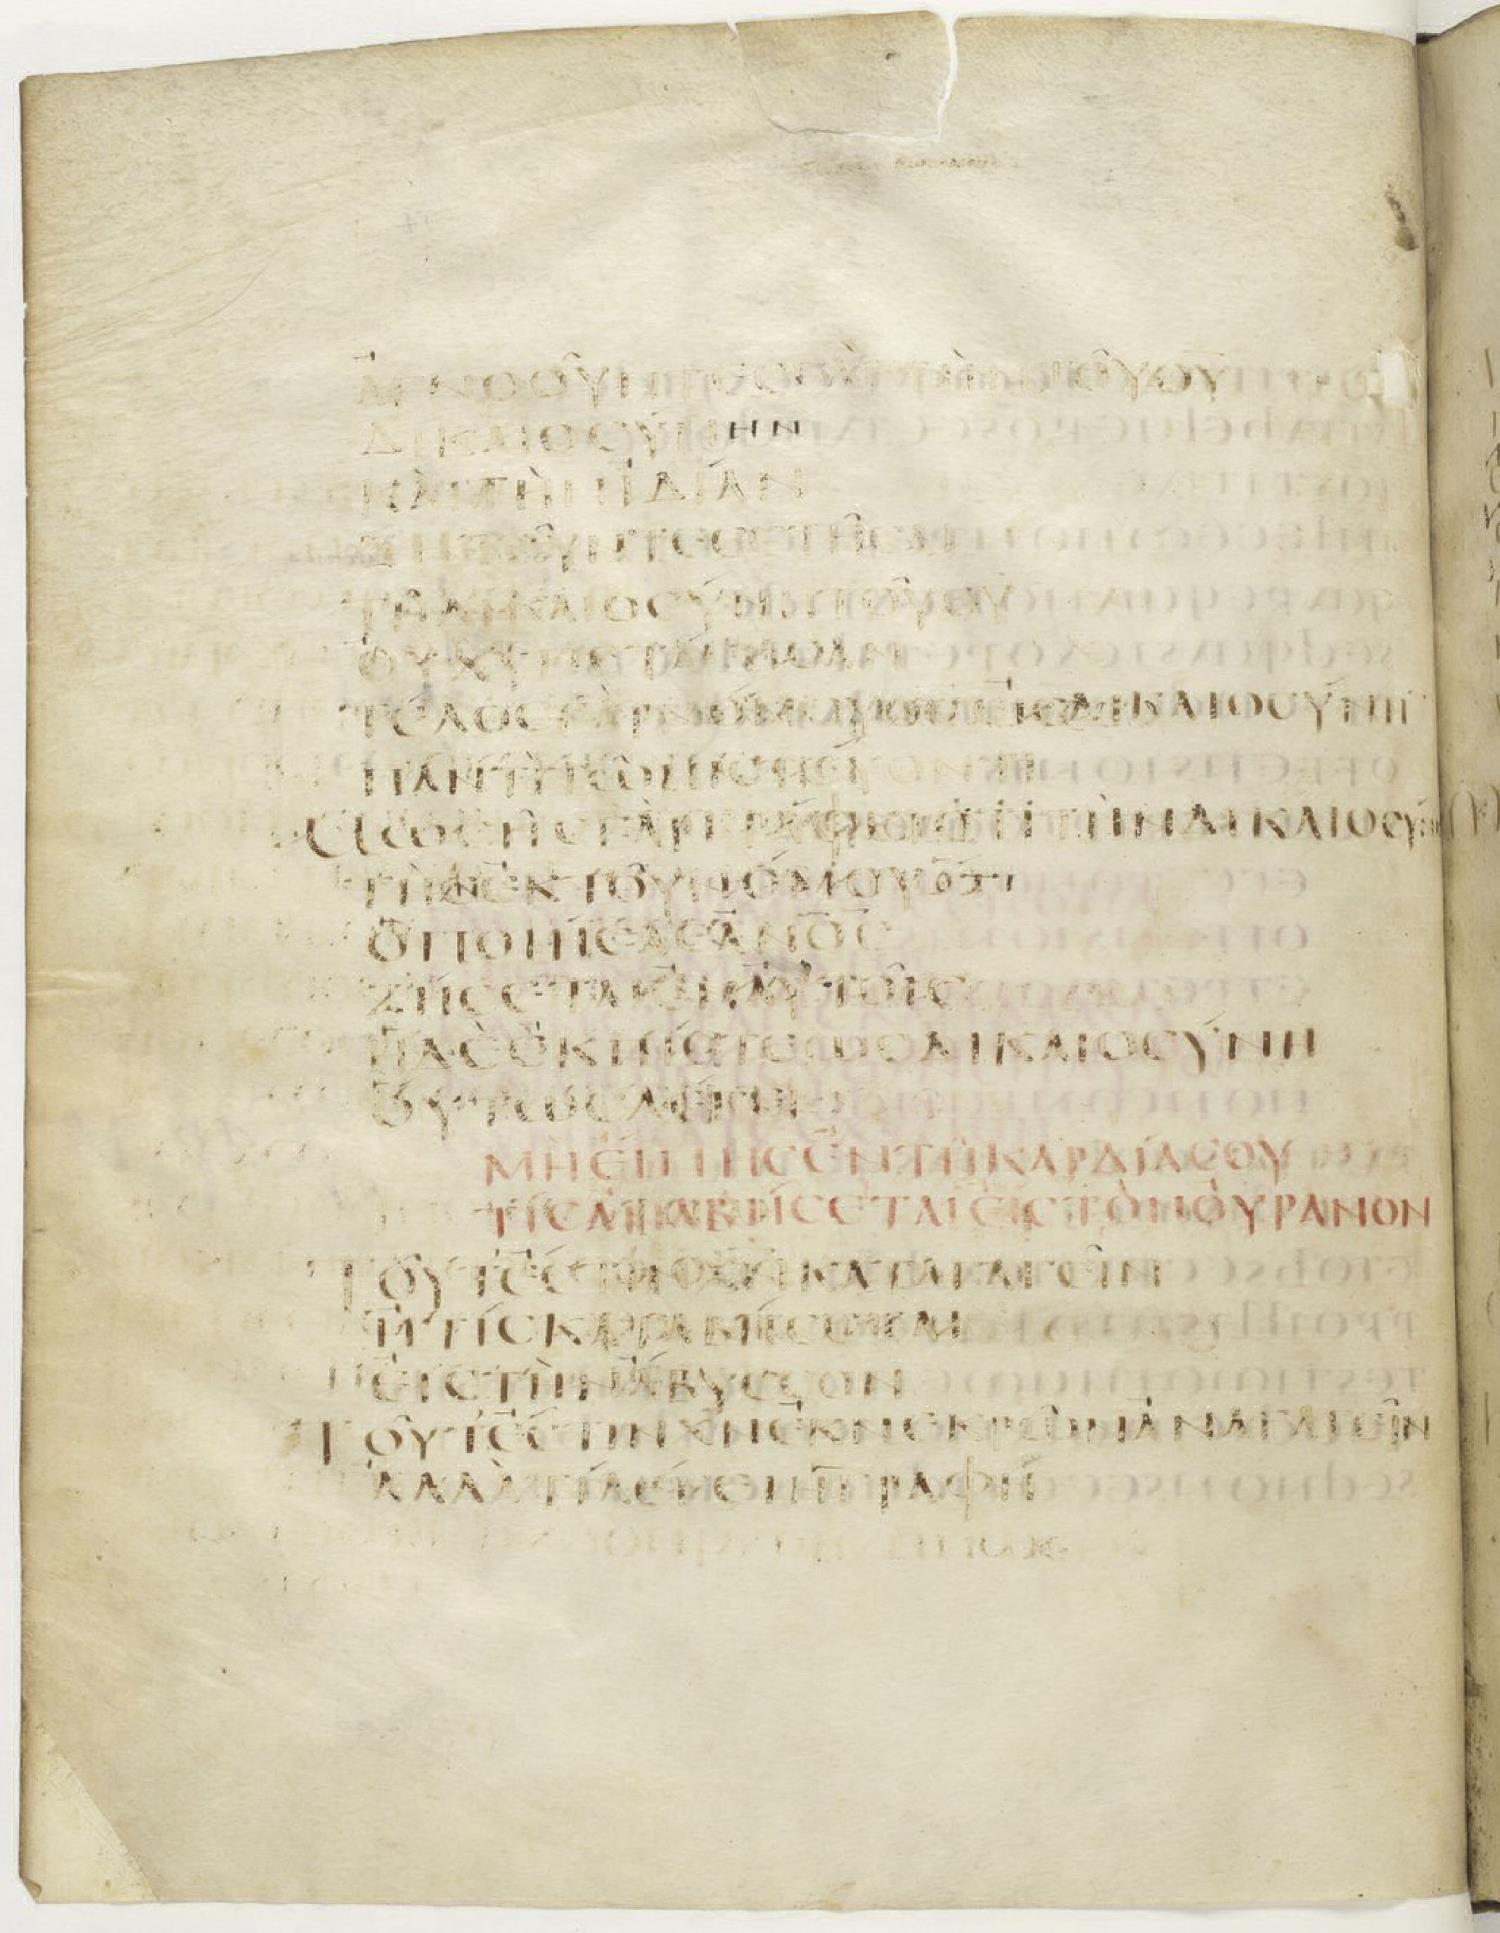 ΑΓΝΟΟΥΝΤΕΣ ΓΑΡ ΤΗΝ ΤΟΥ ΘΥ
ΔΙΚΑΙΟΣΥΝΗΝ
ΚΑΙ ΤΗΝ ΙΔΙΑΝ
ΖΗΤΟΥΝΤΕΣ ΣΤΗΣΑΙ
ΤΗ ΔΙΚΑΙΟΣΥΝΗ ΤΟΥ ΘΥ
ΟΥΧ ΥΠΕΤΑΓΗΣΑΝ
ΤΕΛΟΣ ΓΑΡ ΝΟΜΟΥ ΧΡΣ ΕΙΣ ΔΙΚΑΙΟΣΥΝΗΝ
ΠΑΝΤΙ ΤΩ ΠΙΣΤΕΥΟΝΤΙ
ΜΩΣΗΣ ΓΑΡ ΓΡΑΦΕΙ ΟΤΙ ΤΗΝ ΔΙΚΑΙΟΣΥΝΗΝ
ΤΗΝ ΕΚ ΤΟΥ ΝΟΜΟΥ ΟΤΙ
Ο ΠΟΙΗΣΑΣ ΑΝΟΣ
ΖΗΣΕΤΑΙ ΕΝ ΑΥΤΟΙΣ
Η ΔΕ ΕΚ ΠΙΣΤΕΩΣ ΔΙΚΑΙΟΣΥΝΗ
ΟΥΤΩΣ ΛΕΓΕΙ
ΜΗ ΕΙΠΗΣ ΕΝ ΤΗ ΚΑΡΔΙΑ ΣΟΥ
ΤΙΣ ΑΝΑΒΗΣΕΤΑΙ ΕΙΣ ΤΟΝ ΟΥΡΑΝΟΝ
ΤΟΥΤ ΕΣΤΙΝ ΧΡΝ ΚΑΤΑΓΑΓΕΙΝ
Η ΤΙΣ ΚΑΤΑΒΗΣΕΤΑΙ
ΕΙΣ ΤΗΝ ΑΒΥΣΣΟΝ
ΤΟΥΤ ΕΣΤΙΝ ΧΡΝ ΕΚ ΝΕΚΡΩΝ ΑΝΑΓΑΓΕΙΝ
ΑΛΛΑ ΤΙ ΛΕΓΕΙ Η ΓΡΑΦΗ